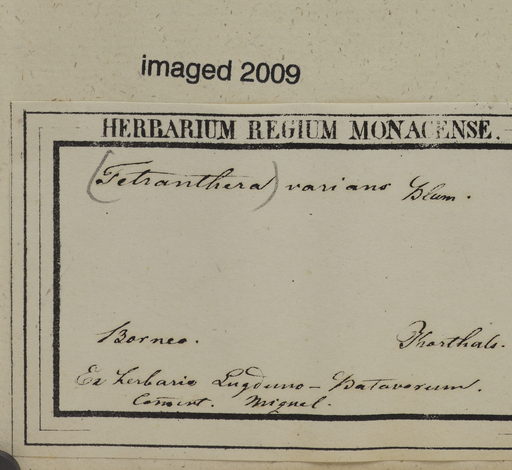 imaged 2009
HERBARIUM REGIUM MONACENSE.
(Tetranthera) varians Blum.
Borneo. Khorthals.
Ex herbario Lugduno-Batavorum.
Comunt. Miquel.